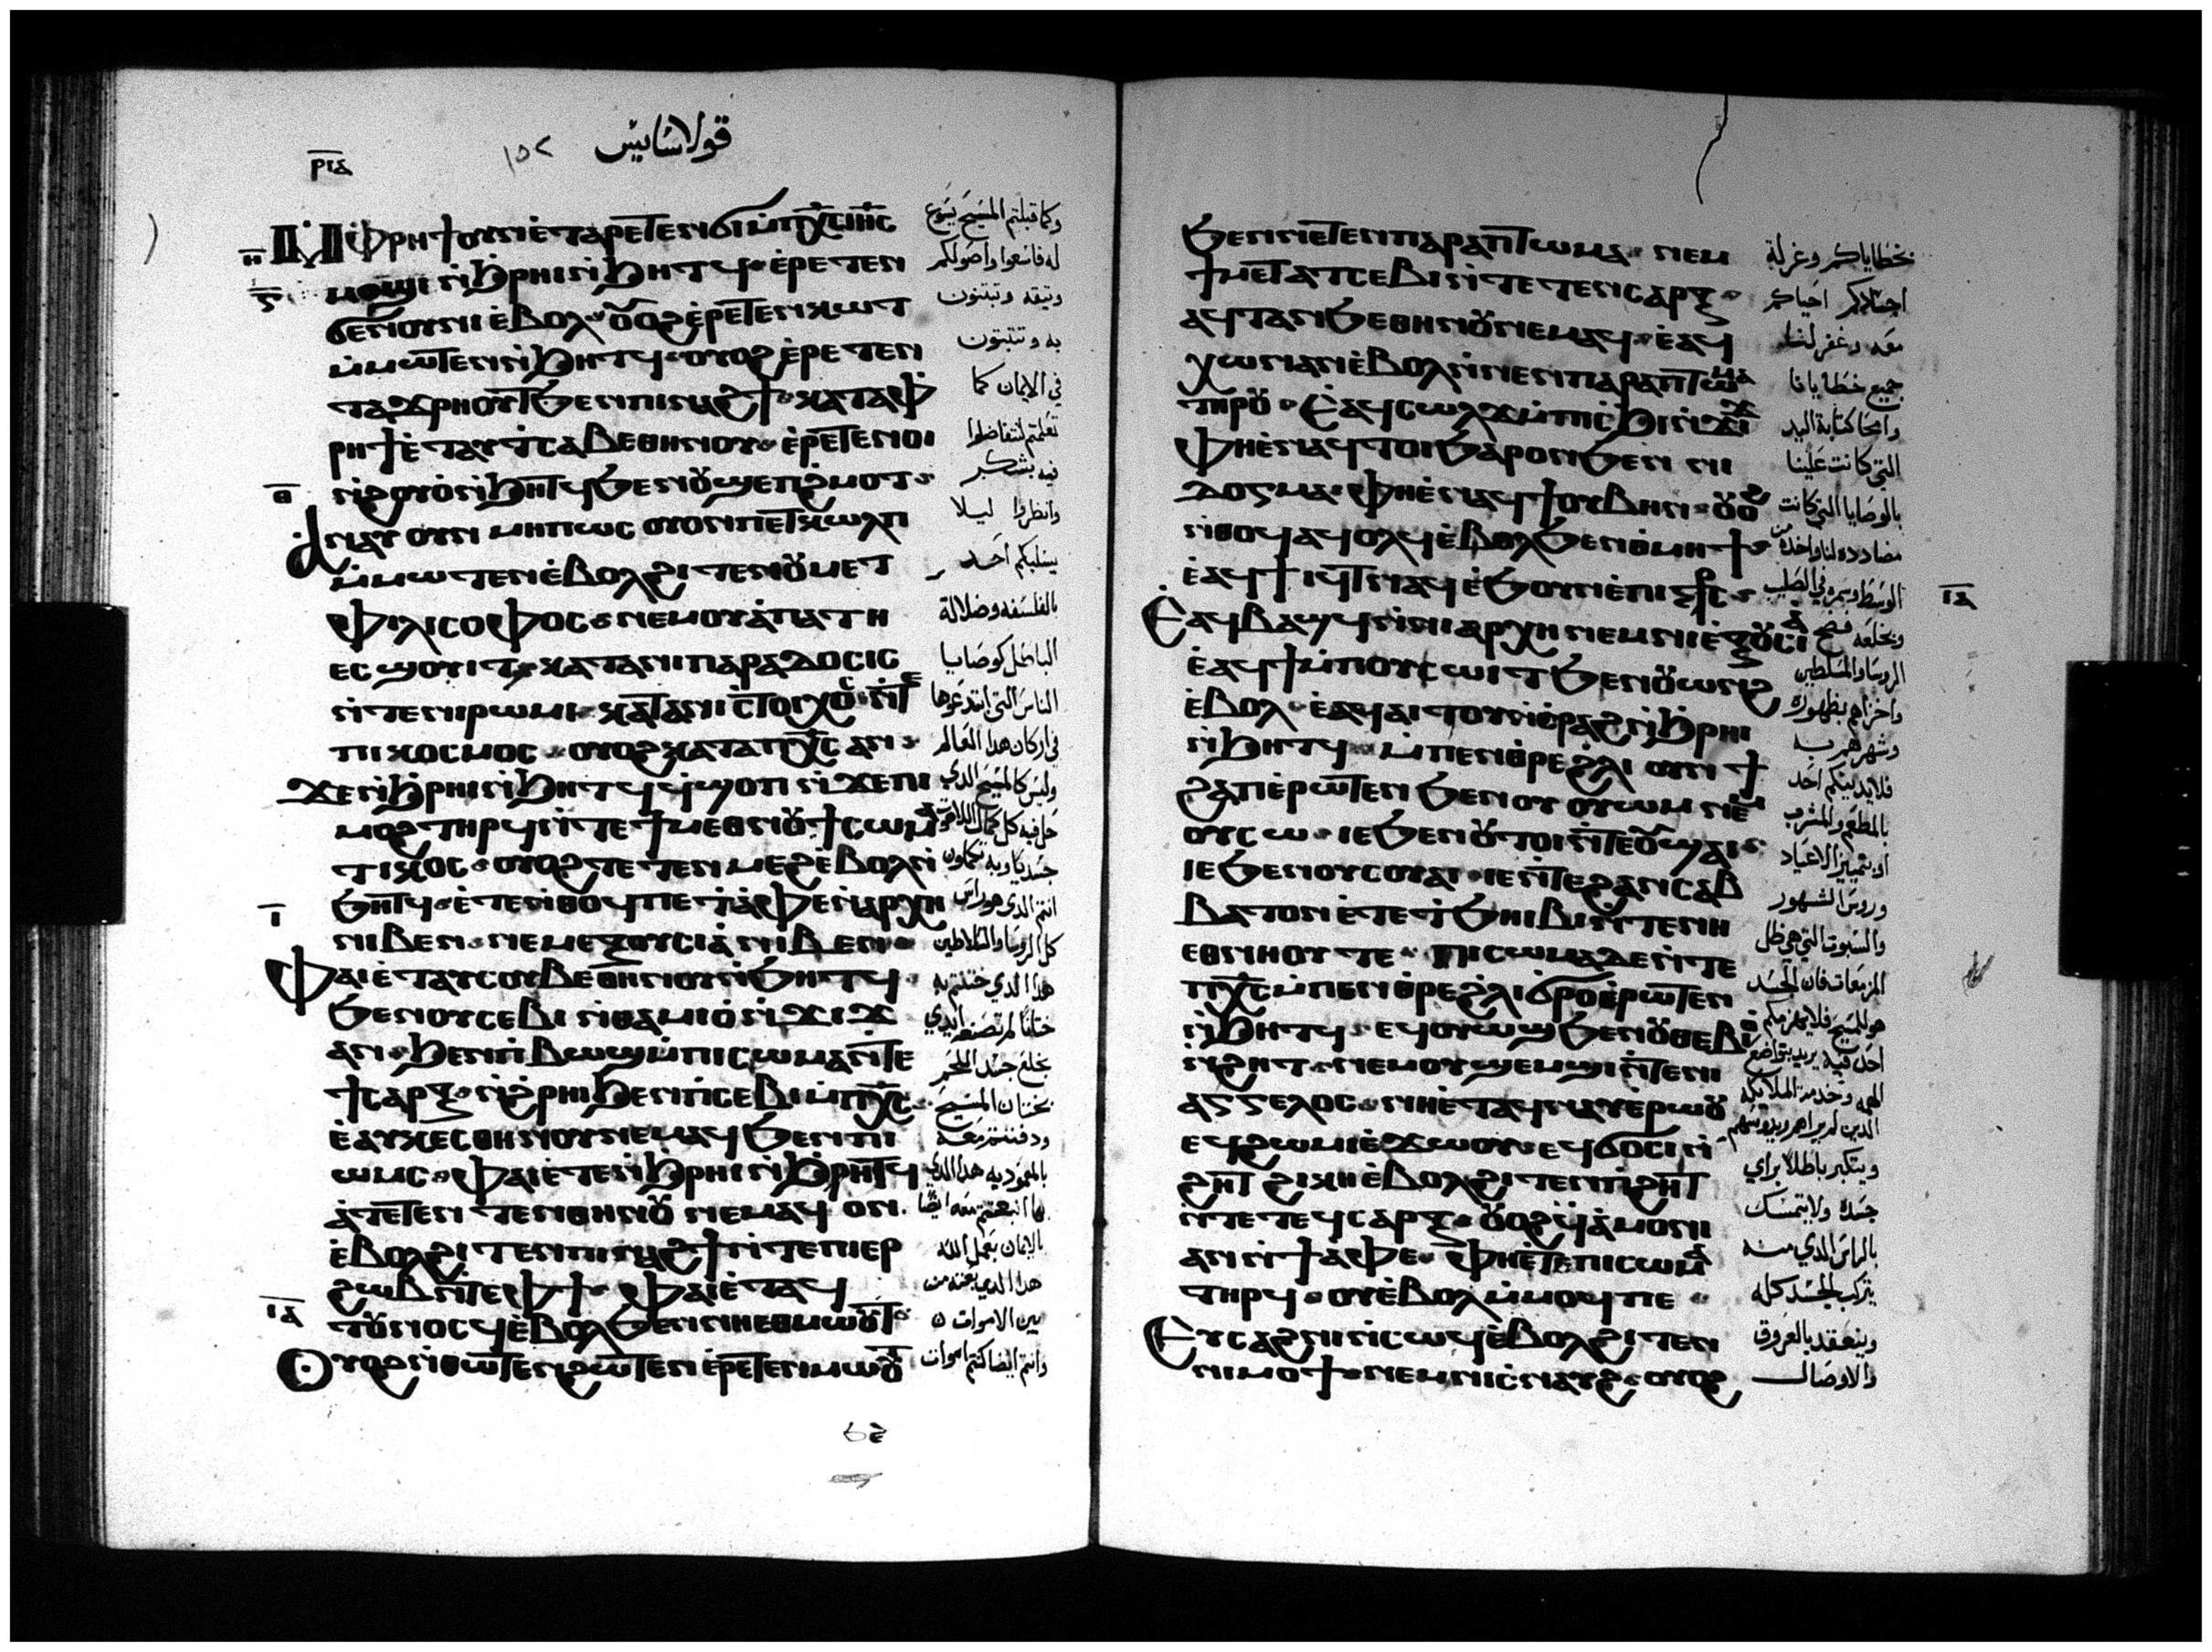 ⲣⲓⲇ
١٥٢ قولاسايس
ⲙ̇ⲫⲣⲏϯⲟⲩⲛⲉ̀ⲧⲁⲣⲉⲧⲉⲛϭⲓⲙ̇ⲡⲭ̅ⲥ̅ⲓⲏ̅ⲥ̅
ⲙⲟϣⲓ ⲛ̀ϧⲣⲏⲓⲛ̀ϧⲏⲧϥ ⲉ̀ⲣⲉⲧⲉⲛ
ϭⲉⲛⲟⲩⲛⲓ ⲉ̀ⲃⲟⲗ ⲟⲩⲟϩ ⲉ̀ⲣⲉⲧⲉⲛⲕⲱⲧ
ⲙ̀ⲙⲱⲧⲉⲛⲛ̀ϧⲏⲧϥ ⲟⲩⲟϩ ⲉ̀ⲣⲉⲧⲉⲛ
ⲧⲁϫⲣⲏⲟⲩⲧϧⲉⲛⲡⲓⲛⲁϩϯ ⲕⲁⲧⲁⲫ
ⲣⲏϯⲉ̀ⲧⲁⲩⲧⲥⲁⲃⲉⲑⲏⲛⲟⲩ ⲉ̀ⲣⲉⲧⲉⲛⲟⲓ
ⲛ̀ϩⲟⲩⲟ̀ⲛ̀ϧⲏⲧϥϧⲉⲛⲟⲩϣⲉⲡϩ̀ⲙⲟⲧ
ⲁⲛⲁⲩ ⲟⲩⲛ ⲙⲏⲡⲱⲥ ⲟⲩⲟⲛⲡⲉⲧⲕⲱⲗⲡ
ⲙ̀ⲙⲱⲧⲉⲛⲉ̀ⲃⲟⲗϩⲓⲧⲉⲛⲟⲩⲙⲉⲧ
ⲫⲓⲗⲓⲥⲟⲫⲟⲥ ⲛⲉⲙⲟⲩⲁ̀ⲡⲁⲧⲏ
ⲉⲥϣⲟⲩⲓⲧ ⲕⲁⲧⲁⲛⲓⲡⲁⲣⲁⲇⲟⲥⲓⲥ
ⲛ̀ⲧⲉⲛⲓⲣⲱⲙⲓ ⲕⲁⲧⲁⲛⲓⲥ̀ⲧⲟⲓⲭⲟⲥ ⲛ̀ⲧⲉ
ⲡⲓⲕⲟⲥⲙⲟⲥ ⲟⲩⲟϩⲕⲁⲧⲁⲡⲭ̅ⲥ̅ ⲁⲛ
ϫⲉⲛ̀ϧⲣⲏⲓⲛ̀ϧⲏⲧϥ ϥ̀ϣⲟⲡ ⲛ̀ϫⲉⲡⲓ
ⲙⲟϩ ⲧⲏⲣϥⲛ̀ⲧⲉϯⲙⲉⲑⲛⲟⲩϯⲥⲱⲙⲁ
ⲧⲓⲕⲟⲥ ⲟⲩⲟϩⲧⲉⲧⲉⲛⲙⲉϩⲉ̀ⲃⲟⲗⲛ̀
ϧⲏⲧϥ ⲉ̀ⲧⲉⲛ̀ⲑⲟϥⲡⲉ ⲧ̀ⲁ̀ⲫⲉⲛ̀ⲁⲣⲭⲏ
ⲛⲓⲃⲉⲛ ⲛⲉⲙⲉⲝⲟⲩⲥⲓⲁ̀ ⲛⲓⲃⲉⲛ
ⲫⲁⲓⲉ̀ⲧⲁⲩⲥⲟⲩⲃⲉⲑⲏⲛⲟⲩⲛ̀ϧⲏⲧϥ
ϧⲉⲛⲟⲩⲥⲉⲃⲓ ⲛ̀ⲑⲁⲙⲓⲟ̀ ⲛ̀ϫⲓϫ
ⲁⲛ ϧⲉⲛⲡⲓⲃⲱϣⲙ̀ⲡⲓⲥⲱⲙⲁⲛ̀ⲧⲉ
ϯⲥⲁⲣⲝ ⲛ̀ϩ̀ⲣⲏⲓϧⲉⲛⲡ̀ⲥⲉⲃⲓⲙ̀ⲡⲭ̅ⲥ̅
ⲉ̀ⲁⲩⲕⲉⲥⲑⲏⲛⲟⲩⲛⲉⲙⲁϥϧⲉⲛⲡⲓ
ⲱⲙⲥ ⲫⲁⲓⲉ̀ⲧⲉⲛ̀ϧⲣⲏⲓⲛ̀ϧⲣⲏⲧϥ
ⲁ̀ⲧⲉⲧⲉⲛ ⲧⲉⲛⲑⲏⲛⲟⲩ ⲛⲉⲙⲁϥ ⲟⲛ
ⲉ̀ⲃⲟⲗϩⲓ ⲧⲉⲛⲡⲓⲛⲁϩϯⲛ̀ⲧⲉⲡⲓⲉⲣ
ϩⲱⲃⲛ̀ⲧⲉⲫϯ ⲫⲁⲓⲉ̀ⲧⲁϥ
ⲧⲟⲩⲛⲟⲥϥⲉ̀ⲃⲟⲗϧⲉⲛⲛⲏⲉⲑⲙⲱⲟⲩⲧ
ⲟⲩⲟϩⲛ̀ⲑⲱⲧⲉⲛϩⲱⲧⲉⲛ ⲉ̀ⲣⲉⲧⲉⲛⲙⲱⲟⲩⲧ
وكما قبلتم المسيح يسوع
له فاسعوا واصولكم
وثيقه وتبتنون
به وتثبتون
في الايمان كما
تعلمتم لتتفاضلوا
فيه بشكر
وانظروا ليلا
يسلبكم احد
بالفلسفه وضلالة
الباطل كوصايا
الناس التي ابتدعوها
في اركان هدا العالم
وليس كالمسيح الدي
حل فيه كل كمال اللاهوت
جسديا وبه تكملون
انتم الدي هو راس
كل الروسا والسلاطين
هدا الدي ختنتم به
ختانا لم تصنعه ايدي
بخلع جسد اللحم
بختان المسيح
ودفنتم معه
بالمعموديه هدا الدي
بالايمان بعمل الله
هدا الدي بعثه من
بين الاموات
وانتم ايضا كنتم اموات
ϧⲉⲛⲛⲉⲧⲉⲛⲡⲁⲣⲁⲡⲧⲱⲙⲁ ⲛⲉⲙ
ϯⲙⲉⲧⲁⲧⲥⲉⲃⲓⲛ̀ⲧⲉⲧⲉⲛⲥⲁⲣⲝ
ⲁϥⲧⲁⲛϧⲉⲑⲏⲛⲟⲩⲛⲉⲙⲁϥ ⲉ̀ⲁϥ
ⲭⲱⲛⲁⲛⲉ̀ⲃⲟⲗⲛ̀ⲛⲉⲛⲡⲁⲣⲁⲡⲧⲱⲙⲁ
ⲧⲏⲣⲟⲩ ⲉ̀ⲁϥⲥⲱⲗϫⲙ̀ⲡⲓⲥ̀ϧⲓⲛ̀ϫⲓϫ
ⲫⲏⲉ̀ⲛⲁϥⲧⲟⲓϧⲁⲣⲟⲛϧⲉⲛ ⲛⲓ
ⲇⲟⲅⲙⲁ ⲫⲏⲉ̀ⲛⲁϥϯⲟⲩⲃⲏⲛ ⲟⲩⲟϩ
ⲛ̀ⲑⲟϥⲁϥⲟⲗϥⲉ̀ⲃⲟⲗϧⲉⲛⲑ̀ⲙⲏϯ
ⲉ̀ⲁϥϯⲓϥⲧⲛⲁϥⲉ̀ϧⲟⲩⲛⲉ̀ⲡⲓⲥ̅ⲣ̅ⲥ̅
ⲉ̀ⲁϥⲃⲁϣϥⲛ̀ⲛⲓⲁⲣⲭⲏⲛⲉⲙⲛⲓⲉ̀ⲝⲟⲩⲥⲓⲁ̀
ⲉ̀ⲁϥϯⲙ̀ⲡⲟⲩⲥⲱⲓⲧϧⲉⲛⲟⲩⲱⲛϩ
ⲉ̀ⲃⲟⲗ ⲉ̀ⲁϥⲁⲓⲧⲟⲩⲛ̀ⲑ̀ⲣⲁϩⲛ̀ϧⲣⲏⲓ
ⲛ̀ϧⲏⲧϥ ⲙ̀ⲡⲉⲛⲑ̀ⲣⲉϩⲗⲓ ⲟⲩⲛ ϯ
ϩⲁⲡⲉ̀ⲣⲱⲧⲉⲛ ϧⲉⲛⲟⲩ ⲟⲩⲱⲙ ⲛⲉⲙ
ⲟⲩⲥⲱ ⲓⲉϧⲉⲛⲟⲩⲧⲟⲓⲛ̀ⲧⲉⲟⲩϣⲁⲓ
ⲓⲉϧⲉⲛⲟⲩⲥⲟⲩⲁⲓ ⲓⲉⲛ̀ⲧⲉϩⲁⲛⲥⲁⲃ
ⲃⲁⲧⲟⲛ ⲉ̀ⲧⲉⲧ̀ϧⲏⲓⲃⲓⲛ̀ⲧⲉⲛⲏ
ⲉⲑⲛⲏⲟⲩ ⲧⲉ ⲡⲓⲥⲱⲙⲁⲇⲉⲛ̀ⲧⲉ
ⲡⲭ̅ⲥ̅ⲙ̀ⲡⲉⲛⲑ̀ⲣⲉϩⲗⲓϭⲣⲟⲉ̀ⲣⲱⲧⲉⲛ
ⲛ̀ϧⲏⲧϥ ⲉϥⲟⲩⲱϣϧⲉⲛⲟⲩⲑⲉⲃⲓⲟ
ⲛ̀ϩⲏⲧ ⲛⲉⲙⲟⲩϣⲉⲙϣⲓⲛ̀ⲧⲉⲛⲓ
ⲁⲅⲅⲉⲗⲟⲥ ⲛⲏⲉ̀ⲧⲁϥⲛⲁⲩⲉ̀ⲣⲱⲟⲩ
ⲉϥϩⲱⲙⲓⲉ̀ϫⲱⲟⲩ ⲉϥϭⲟⲥⲓⲛ̀
ϩⲏⲧ ϩⲓⲕⲏⲉ̀ⲃⲟⲗϩⲓⲧⲉⲛⲡ̀ϩⲏⲧ
ⲛ̀ⲧⲉⲧⲉϥⲥⲁⲣⲝ ⲟⲩⲟϩϥ̀ⲁ̀ⲙⲟⲛⲓ
ⲁⲛⲛ̀ϯⲁⲫⲉ ⲫⲏⲉ̀ⲧⲉⲡⲓⲥⲱⲙⲁ
ⲧⲏⲣϥ ⲟⲩⲉ̀ⲃⲟⲗⲙ̀ⲙⲟϥⲡⲉ
ⲉⲩⲥⲁϩⲛⲓⲛ̀ⲥⲱϥⲉ̀ⲃⲟⲗϩⲓⲧⲉⲛ
ⲛⲓⲙⲟϯ ⲛⲉⲙⲛⲓⲥ̀ⲛⲁⲩϩ ⲟⲩⲟϩ
بخطاياكم وغرلة
اجسادكم احياكم
معه وغفر لنا
جميع خطايانا
وامحا كتابة اليد
التي كانت علينا
بالوصايا التي كانت
مضادده لنا واخده من
الوسط وسمره في الصليب
الروسا والمسلطين
واخزاهم بظهوره
وشهرهم به
فلا يدينكم احد
بالمطعم والمشرب
او بتمييز الاعياد
وروس الشهور
والسبوت التي هي ظل
المزمعات فان الجسد
هو للمسيح فلا يهزمكم
احد فيه يريد بتواضع
ويتكبر باطلا براي
جسده ولا يتمسك
بالراس الدي منه
يتركب الجسد كله
وينعقد بالعروق
والاوصال
ⲓⲇ